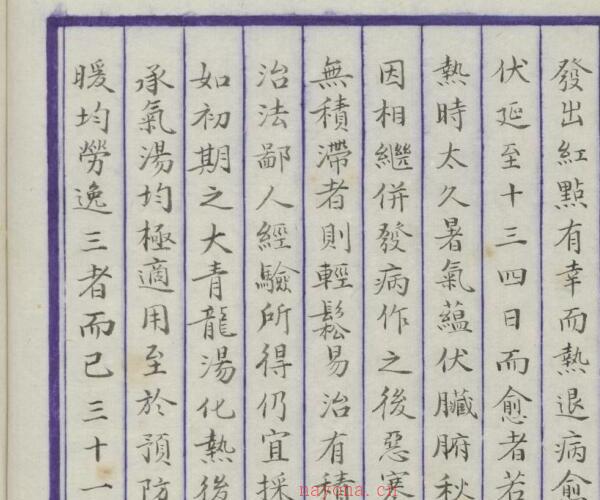 發出紅點有幸而熱退病愈
伏延至十三四日而愈者若
熱時太久暑氣蘊伏臟腑秋
因相繼併發病作之後惡寒
無積滯者則輕鬆易治有積
治法鄙人經驗所得仍宜採
如初期之大青龍湯化熱後
承氣湯均極適用至於預防
暖均勞逸三者而已三十一
nayona.cn